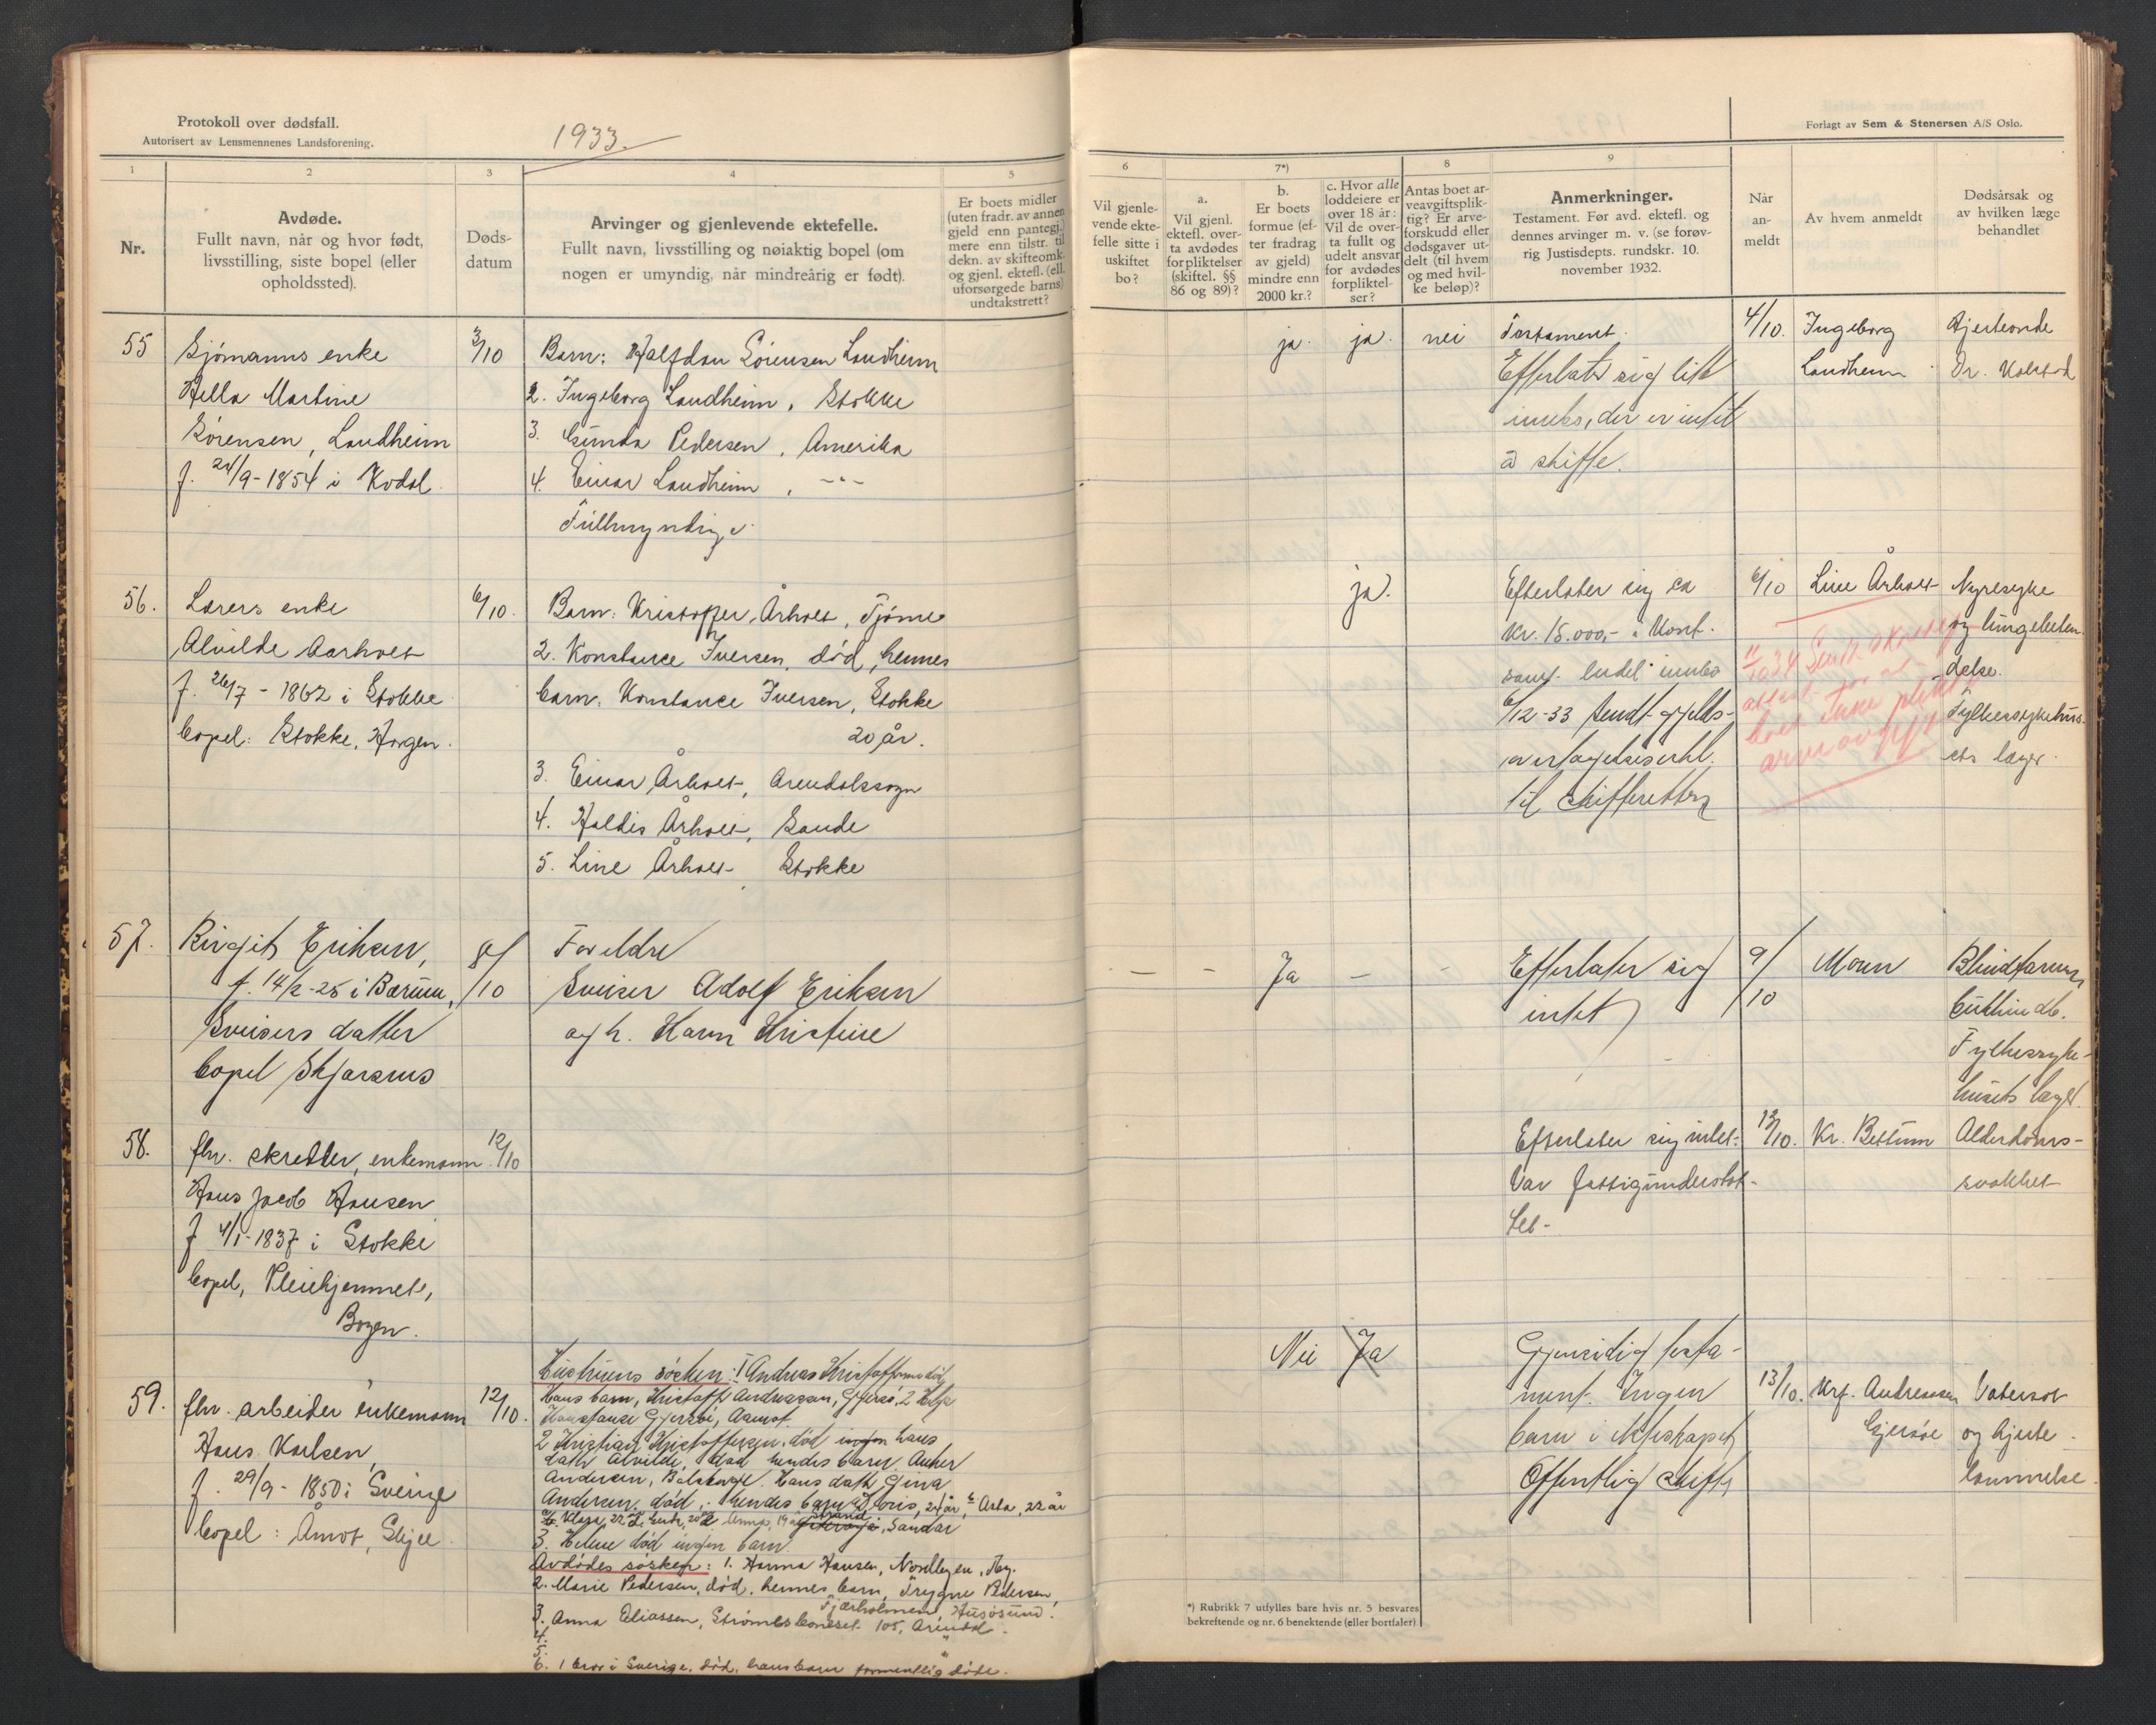 Protokoll over dødsfall.
Autorisert av Lensmennenes Landsforening.
1933.
Forlagt av Sem & Stenersen A/S Oslo.
1
2
3
4
5
6
7*)
8
9
Nr.
Avdøde.
Fullt navn, når og hvor født,
livsstilling, siste bopel (eller
opholdssted).
Døds-
datum
Arvinger og gjenlevende ektefelle.
Fullt navn, livsstilling og nøiaktig bopel (om
nogen er umyndig, når mindreårig er født).
Er boets midler
(uten fradr. av annen
gjeld enn pantegj.)
mere enn tilstr. til
dekn. av skifteomk.
og gjenl. ektefl. (ell.
uforsørgede barns)
undtakstrett?
Vil gjenle-
vende ekte-
felle sitte i
uskiftet
bo?
a.
Vil gjenl.
ektefl. over-
ta avdødes
forpliktelser
(skiftel. §§
86 og 89)?
b.
Er boets
formue (ef-
ter fradrag
av gjeld)
mindre enn
2000 kr.?
c. Hvor alle
loddeiere er
over 18 år:
Vil de over-
ta fullt og
udelt ansvar
for avdødes
forpliktel-
ser?
Antas boet ar-
veavgiftsplik-
tig? Er arve-
forskudd eller
dødsgaver ut-
delt (til hvem
og med hvil-
ke beløp)?
Anmerkninger.
Testament. Før avd. ektefl. og
dennes arvinger m. v. (se forøv-
rig Justisdepts. rundskr. 10.
november 1932.
Når
an-
meldt
Av hvem anmeldt
Dødsårsak og
av hvilken læge
behandlet
55
Sjömanns enke
Hella Martine
Sörensen, Landheim
f. 24/9-1854 i Kodal
3/10
Barn: Halfdan Sörensen Landheim
2. Ingeborg Landheim, Stokke
3. Gunda Pedersen, Amerika
4. Einar Landheim, -"-
Fullmyndige
ja
ja.
nei
Testament.
Efterlater sig litt
innbo, der er intet
å skifte.
4/10.
Ingeborg
Landheim
Hjerteonde
Dr. Kolstad
56.
Lærers enke
Alvilde Aarholt
f. 26/7 - 1862 i Stokke
bopel: Stokke, Horgen.
6/10.
Barn: Kristoffer Årholt, Tjøme
2. Konstance Iversen, död, hennes
barn: Konstance Iversen, Stokke
20 år.
3. Einar Årholt, Arendalssogn
4. Haldis Årholt, Sande
5. Line Årholt Stokke
ja.
Efterlater sig ca
kr. 15.000,- i kont.
samt endel innbo
6/12-33 sendt gjelds-
overtagelseserkl.
til skifteretten
6/10
Line Årholt
Nyresyke
og lungebeten-
delse.
Fylkessykehus-
ets læger.
boet ikke pliktig
arveavgift
57.
Birgit Eriksen,
f. 14/2-25 i Bærum,
Sveisers datter
bopel Skjærsnes
8/10
Foreldre
Sveiser Adolf Eriksen
og h. Karen Kristine
- - Ja - -
Efterlater sig
intet
9/10
Moren
Blindtarms
Fylkessyke-
husets læger.
58.
fhv. skredder, enkemann
Hans Jacob Hansen
f 4/1-1837 i Stokke
bopel, Pleiehjemmet,
Bogen.
12/10
Efterlater sig intet.
Var fattigunderstöt-
tet-
12/10.
Kr. Bettum
Alderdoms-
svakhet
59.
fhv. arbeider enkemann
Hans Karlsen,
f. 29/9 - 1850 i Sverige
bopel: Åmot, Skjee
12/10.
Hustruens sösken: 1 Andreas Kristoffersen död,
Hans barn, Kristoffer Andreassen, Gjersö, 2
Konstanse Gjersöe, Aamot.
2 Kristian Kristoffersen, död ingen hans
datter Alvilde, död hendes barn Anker
Andersen, . Hans datter Gina
Andersen, död, hendes barn a Doris, 24 år, b Asta, 22 år
Sandar
3. Helene död ingen barn
Avdödes sösken: 1. Hanna Hansen, Nordbyen, Tbg.
2. Marie Pedersen, död, hennes barn, Trygve Pedersen,
Fjærholmen, Husøsund.
3. Anna Eliassen, Strömsboneset 105, Arendal.
4.
5.
6. 1 bror i Sverige, död, hans barn formentlig döde.
Nei
Ja
Gjensidig testa-
ment. Ingen
barn i ekteskapet
Offentlig skifte
13/10.
Krf. Andreassen
Gjersöe
Vatersot
og hjerte-
lammelse.
*) Rubrikk 7 utfylles bare hvis nr. 5 besvares
bekreftende og nr. 6 benektende (eller bortfaler)